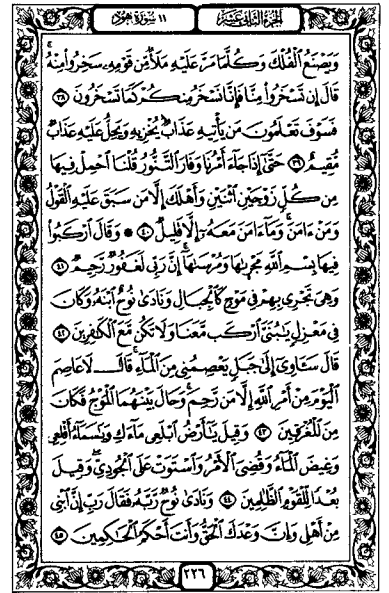 الجزء الثاني عشر ١١ سورة هود
وَيَصْنَعُ ٱلْفُلْكَ وَكُلَّمَا مَرَّ عَلَيْهِ مَلَأٌ مِّن قَوْمِهِۦ سَخِرُوا۟ مِنْهُ ۚ
قَالَ إِن تَسْخَرُوا۟ مِنَّا فَإِنَّا نَسْخَرُ مِنكُمْ كَمَا تَسْخَرُونَ ٣٨
فَسَوْفَ تَعْلَمُونَ مَن يَأْتِيهِ عَذَابٌ يُخْزِيهِ وَيَحِلُّ عَلَيْهِ عَذَابٌ
مُّقِيمٌ ٣٩ حَتَّىٰٓ إِذَا جَآءَ أَمْرُنَا وَفَارَ ٱلتَّنُّورُ قُلْنَا ٱحْمِلْ فِيهَا
مِن كُلٍّ زَوْجَيْنِ ٱثْنَيْنِ وَأَهْلَكَ إِلَّا مَن سَبَقَ عَلَيْهِ ٱلْقَوْلُ
وَمَنْ ءَامَنَ ۚ وَمَآ ءَامَنَ مَعَهُۥٓ إِلَّا قَلِيلٌ ٤٠ * وَقَالَ ٱرْكَبُوا۟
فِيهَا بِسْمِ ٱللَّهِ مَجْر۪ىٰهَا وَمُرْسَىٰهَآ ۚ إِنَّ رَبِّى لَغَفُورٌ رَّحِيمٌ ٤١
وَهِىَ تَجْرِى بِهِمْ فِى مَوْجٍ كَٱلْجِبَالِ وَنَادَىٰ نُوحٌ ٱبْنَهُۥ وَكَانَ
فِى مَعْزِلٍ يَٰبُنَىَّ ٱرْكَب مَّعَنَا وَلَا تَكُن مَّعَ ٱلْكَٰفِرِينَ ٤٢
قَالَ سَـَٔاوِىٓ إِلَىٰ جَبَلٍ يَعْصِمُنِى مِنَ ٱلْمَآءِ ۚ قَالَ لَا عَاصِمَ
ٱلْيَوْمَ مِنْ أَمْرِ ٱللَّهِ إِلَّا مَن رَّحِمَ ۚ وَحَالَ بَيْنَهُمَا ٱلْمَوْجُ فَكَانَ
مِنَ ٱلْمُغْرَقِينَ ٤٣ وَقِيلَ يَٰٓأَرْضُ ٱبْلَعِى مَآءَكِ وَيَٰسَمَآءُ أَقْلِعِى
وَغِيضَ ٱلْمَآءُ وَقُضِىَ ٱلْأَمْرُ وَٱسْتَوَتْ عَلَى ٱلْجُودِىِّ ۖ وَقِيلَ
بُعْدًا لِّلْقَوْمِ ٱلظَّٰلِمِينَ ٤٤ وَنَادَىٰ نُوحٌ رَّبَّهُۥ فَقَالَ رَبِّ إِنَّ ٱبْنِى
مِنْ أَهْلِى وَإِنَّ وَعْدَكَ ٱلْحَقُّ وَأَنتَ أَحْكَمُ ٱلْحَٰكِمِينَ ٤٥
٢٢٦